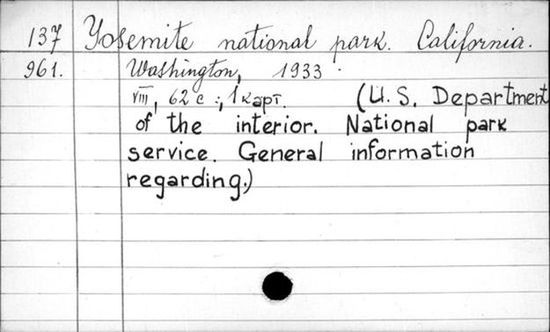 137 Yosemite national park. California.
961. Washington, 1933.
VIII, 62 с.; 1 карт. (U.S. Department
of the interior. National park
service. General information
regarding.)